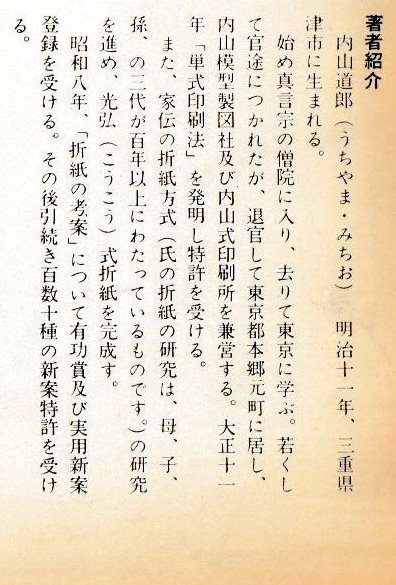 著者紹介
内山道郎（うちやま・みちお）　明治十一年、三重県
津市に生まれる。
始め真言宗の僧院に入り、去りて東京に学ぶ。若くし
て官途につかれたが、退官して東京都本郷元町に居し、
内山模型製図社及び内山式印刷所を兼営する。大正十一
年「単式印刷法」を発明し特許を受ける。
また、家伝の折紙方式（氏の折紙の研究は、母、子、
孫、の三代が百年以上にわたっているものです。）の研究
を進め、光弘（こうこう）式折紙を完成す。
昭和八年、「折紙の考案」について有功賞及び実用新案
登録を受ける。その後引続き百数十種の新案特許を受け
る。